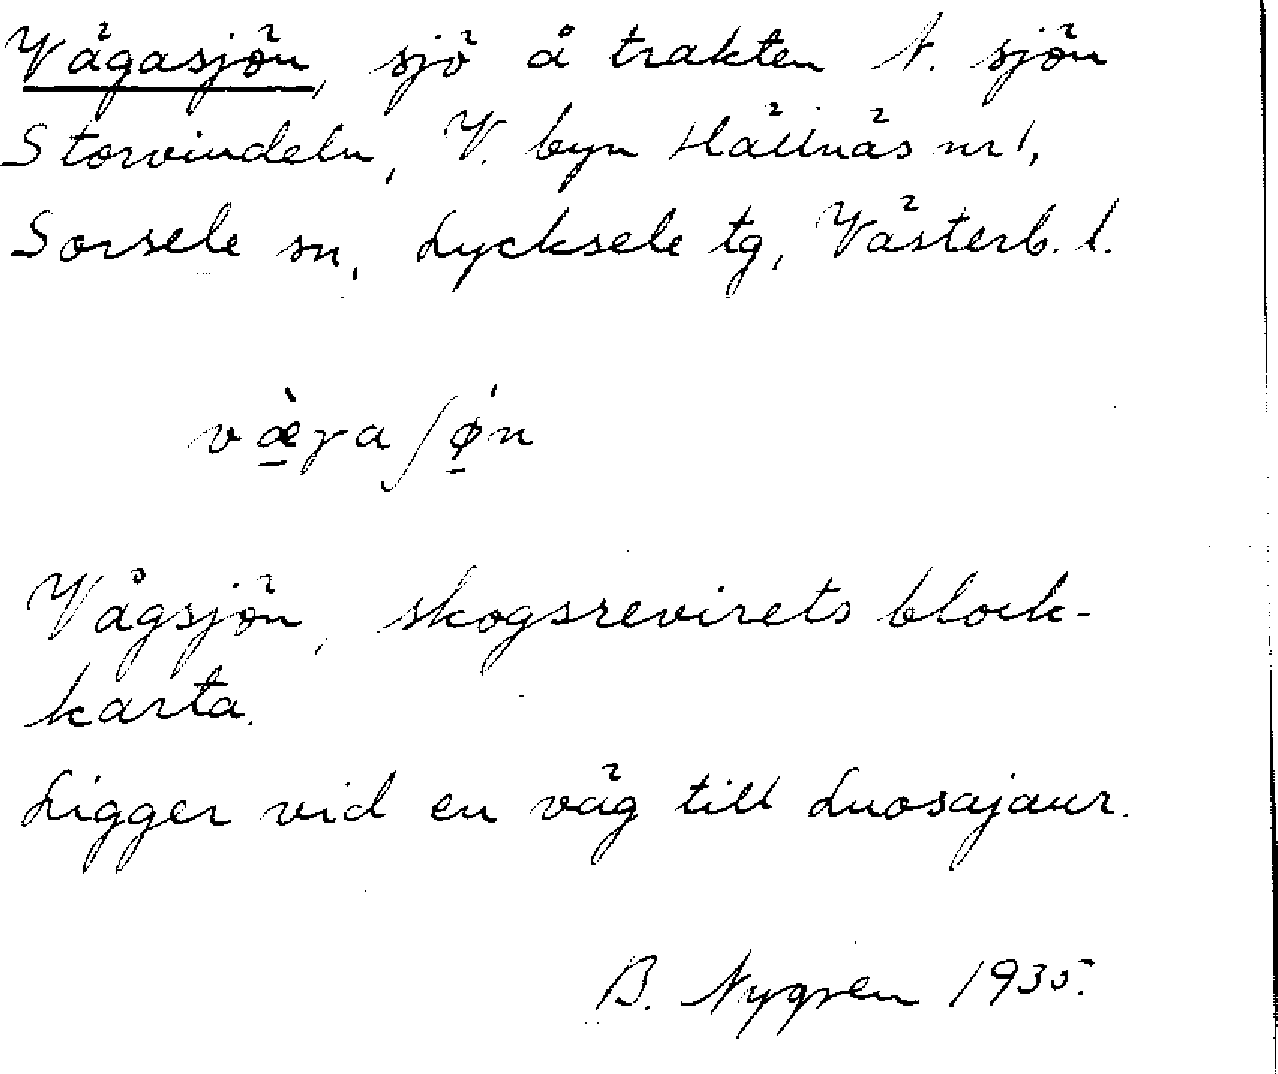 Vägasjön, sjö å trakten N. sjön
Storvindeln, V. byn Hällnäs nr 1,
Sorsele sn, Lycksele tg, Västerb. l.
væ̠̀ɤaʃǿ̠n
Vågsjön, skogsrevirets block-
karta.
Ligger vid en väg till Luosajaur.
B. Nygren 1935.